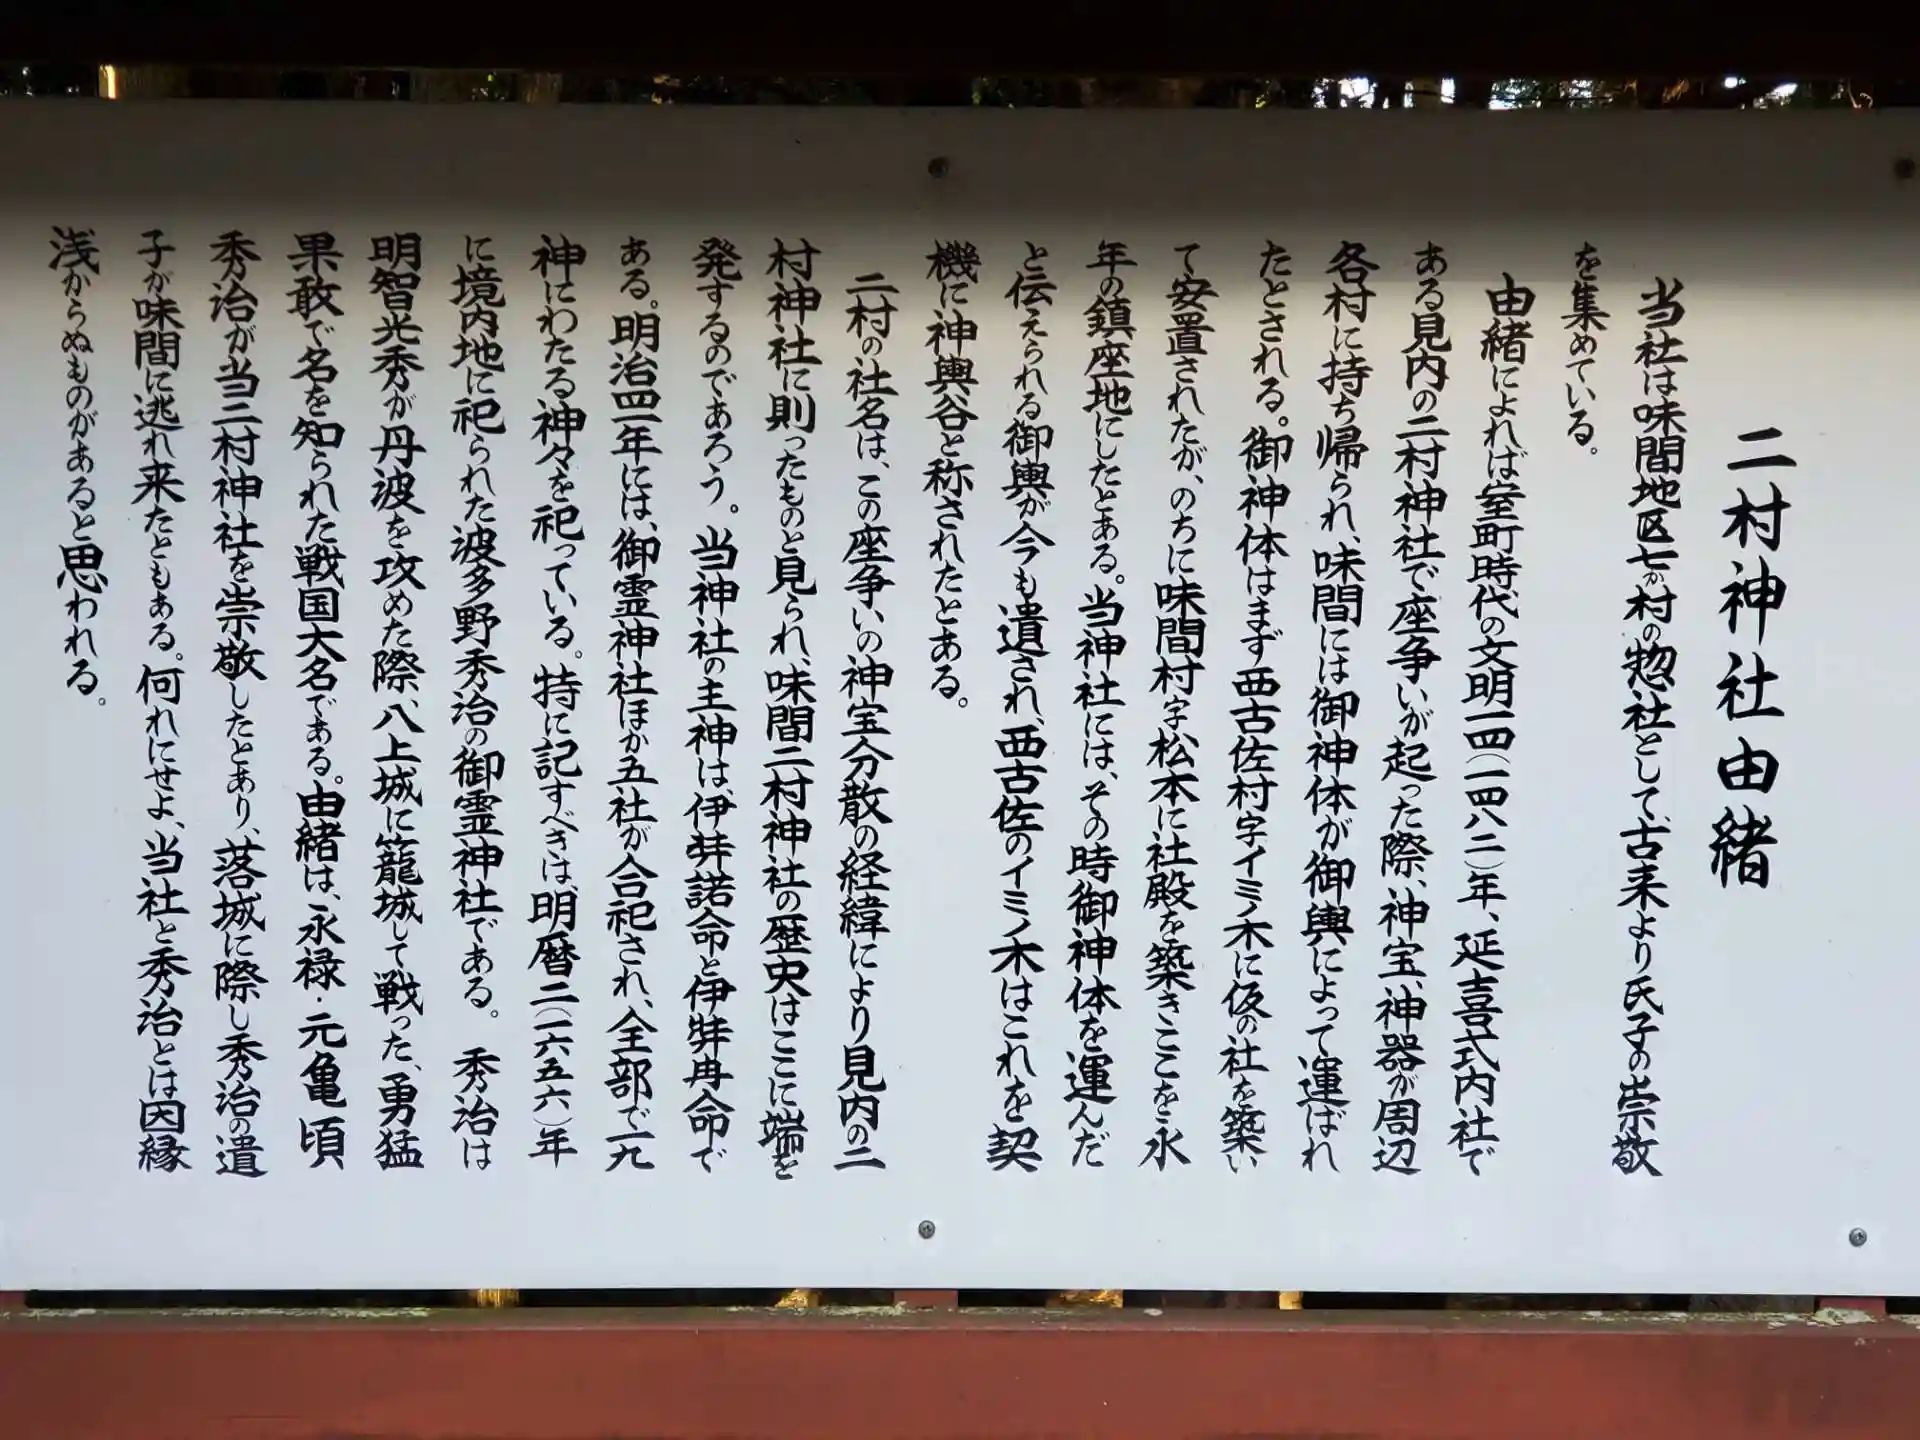 二村神社由緒
当社は味間地区七カ村の惣社として、古来より氏子の崇敬
を集めている。
由緒によれば室町時代の文明一四(一四八二)年、延喜式内社で
ある見内の二村神社で座争いが起った際、神宝、神器が周辺
各村に持ち帰られ、味間には御神体が御輿によって運ばれ
たとされる。御神体はまず西古佐村字イミノ木に仮の社を築い
て安置されたが、のちに味間村字松本に社殿を築きここを永
年の鎮座地にしたとある。当神社には、その時御神体を運んだ
と伝えられる御輿が今も遺され、西古佐のイミノ木はこれを契
機に神輿谷と称されたとある。
二村の社名は、この座争いの神宝分散の経緯により見内の二
村神社に則ったものと見られ、味間二村神社の歴史はここに端を
発するのであろう。当神社の主神は、伊弉諾命と伊弉冉命で
ある。明治四一年には、御霊神社ほか五社が合祀され、全部で一九
神にわたる神々を祀っている。特に記すべきは、明暦二(一六五六)年
に境内地に祀られた波多野秀治の御霊神社である。秀治は
明智光秀が丹波を攻めた際、八上城に籠城して戦った、勇猛
果敢で名を知られた戦国大名である。由緒は、永禄・元亀頃
秀治が当二村神社を崇敬したとあり、落城に際し秀治の遺
子が味間に逃れ来たともある。何れにせよ、当社と秀治とは因縁
浅からぬものがあると思われる。